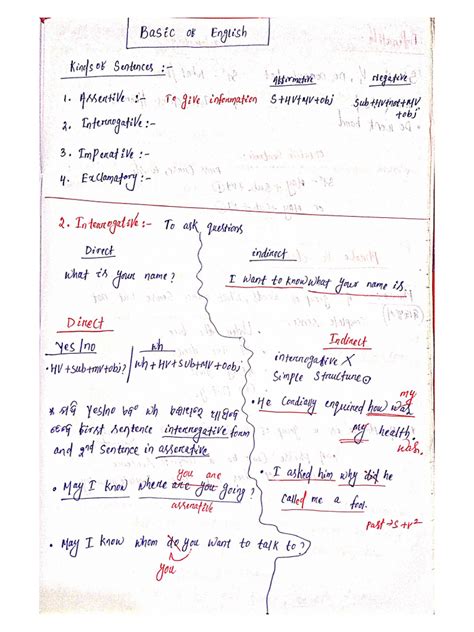 Basic of English
Kinds of Sentences :-
Affirmative Negative
1. Assertive :- To give information S+HV+MV+obj Sub+HV+not+MV+obj
2. Interrogative :-
3. Imperative :-
4. Exclamatory :-
2. Interrogative :- To ask questions
Direct
What is your name?
indirect
I want to know what your name is.
Direct
Yes/no
Wh
• HV+sub+mv+obj?
Wh+HV+sub+MV+obj
Indirect
interrogative X
Simple Structure
Yes/no Wh
first sentence interrogative form
and 2nd sentence in assertive
• He Cordially enquired how was my health.
my
was.
you are
• May I know where are you going?
assertive
• I asked him why did he
called me a fool.
past → S+V2
• May I know whom do you want to talk to?
you